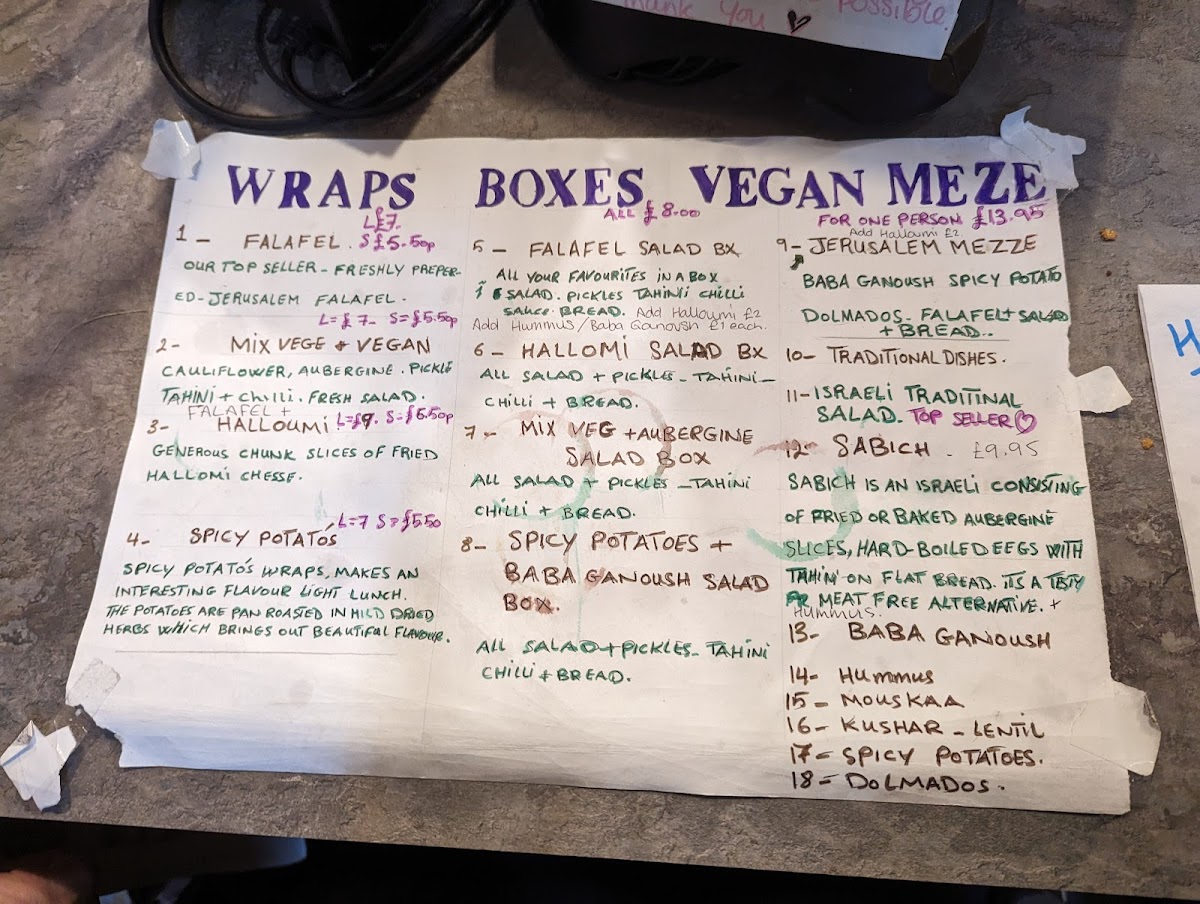 Thank You ♥ possible.
WRAPS
L£7.
1 - FALAFEL. S£5.50p
OUR TOP SELLER - FRESHLY PREPER-
ED - JERUSALEM FALAFEL.
L=£7- S=£5.50p
2- MIX VEGE + VEGAN
CAULIFLOWER, AUBERGINE. PICKLE
TAHINI + CHILLI. FRESH SALAD.
FALAFEL +
3- HALLOUMI L=£9. S=£6.50p
GENEROUS CHUNK SLICES OF FRIED
HALLOMI CHESSE.
L=7 S=£5.50
4- SPICY POTATÓS
SPICY POTATO'S WRAPS, MAKES AN
INTERESTING FLAVOUR LIGHT LUNCH.
THE POTATOES ARE PAN ROASTED IN MILD DRIED
HERBS WHICH BRINGS OUT BEAUTIFUL FLAVOUR.
BOXES
ALL £8.00
5- FALAFEL SALAD BX
ALL YOUR FAVOURITES IN A BOX
SALAD. PICKLES TAHINI CHILLI
SAUCE. BREAD. Add Halloumi £2
Add Hummus/Baba Ganoush £1 each.
6- HALLOMI SALAD BX
ALL SALAD + PICKLES - TAHINI -
CHILLI + BREAD.
7- MIX VEG + AUBERGINE
SALAD BOX
ALL SALAD + PICKLES - TAHINI
CHILLI + BREAD.
8- SPICY POTATOES +
BABA GANOUSH SALAD
BOX.
ALL SALAD + PICKLES - TAHINI
CHILLI + BREAD.
VEGAN MEZE
FOR ONE PERSON £13.95
Add Halloumi £2.
9- JERUSALEM MEZZE
BABA GANOUSH SPICY POTATO
DOLMADOS - FALAFEL + SALAD
+ BREAD..
10- TRADITIONAL DISHES.
11- ISRAELI TRADITINAL
SALAD. TOP SELLER ♡
12- SABICH - £9.95
SABICH IS AN ISRAELI CONSISTING
OF FRIED OR BAKED AUBERGINE
SLICES, HARD-BOILED EEGS WITH
TAHIN ON FLAT BREAD. ITS A TESTY
MEAT FREE ALTERNATIVE. +
Hummus.
13- BABA GANOUSH
14- HUMMUS
15- MOUSKAA
16- KUSHAR - LENTIL
17- SPICY POTATOES.
18- DOLMADOS.